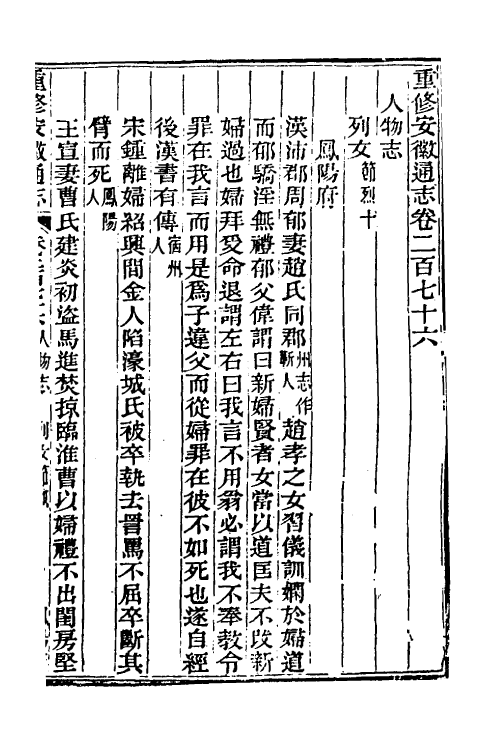 重修安徽通志卷二百七十六
人物志
列女節烈十
鳳陽府
漢沛郡周郁妻趙氏同郡州志作蘄人趙孝之女習儀訓嫻於婦道
而郁驕淫無禮郁父偉謂曰新婦賢者女當以道匡夫不改新
婦過也婦拜受命退謂左右曰我言不用翁必謂我不奉教令
罪在我言而用是爲子違父而從婦罪在彼不如死也遂自經
後漢書有傳宿州人
宋鍾離婦紹興間金人陷濠城氏被卒執去詈罵不屈卒斷其
臂而死鳳陽人
王宣妻曹氏建炎初盜馬進焚掠臨淮曹以婦禮不出閨房堅
重修安徽通志 人物志 列女